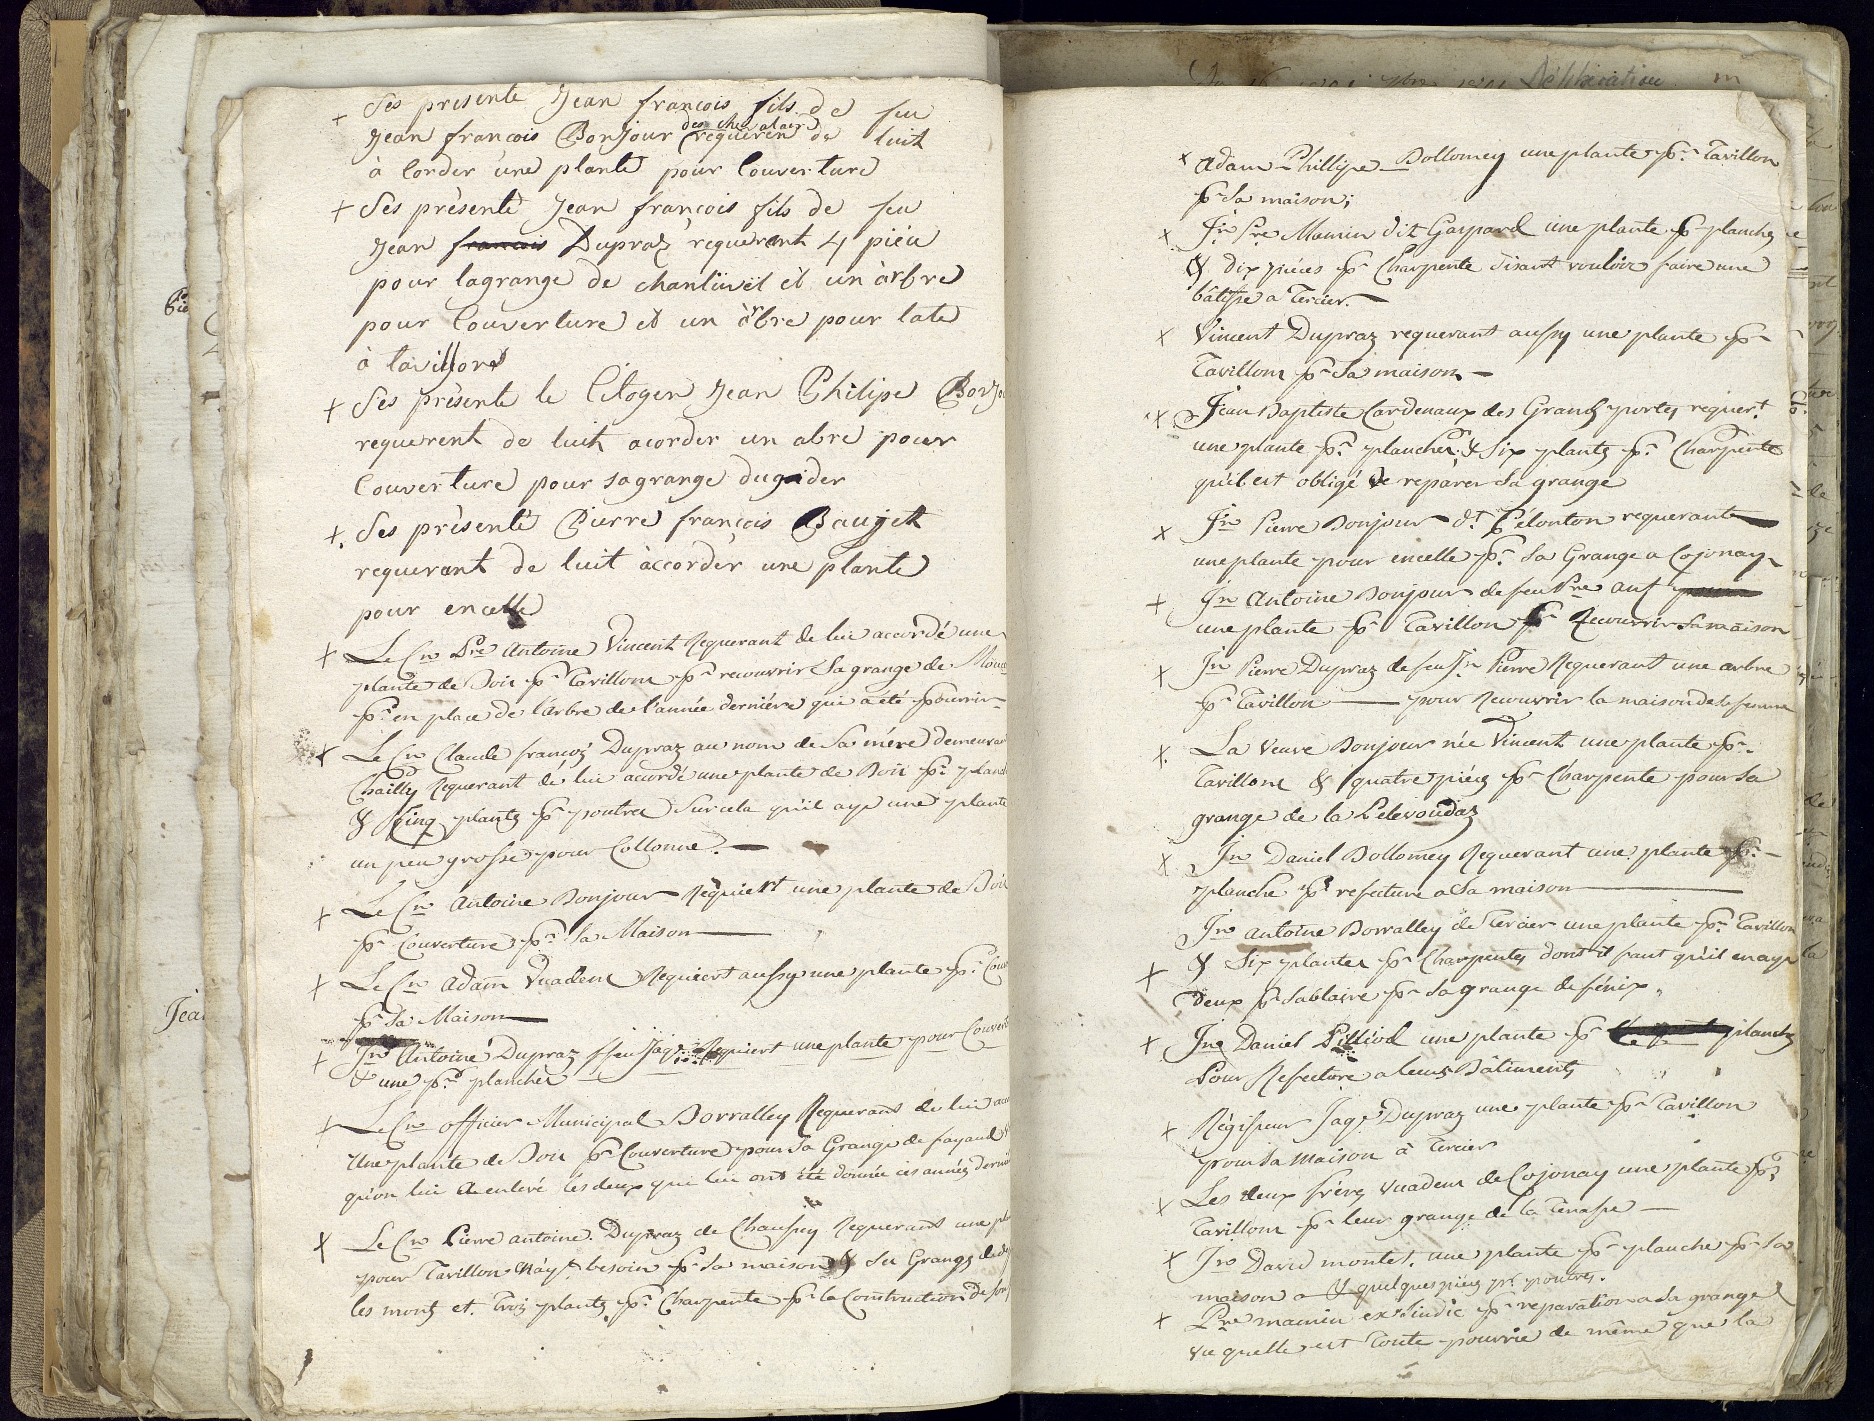 + Ses présenté Jean françois fils de feu
Jean françois Bonjour des chevalaire requeren de luit
à lorder une plante pour Couverture
+ Ses présenté Jean françois fils de feu
Jean françois Dupraz requerant 4 piéce
pour lagrange de chantüvèl et un àrbre
pour Couverture et un àrbre pour late
à tavillons
+ Ses présente le Citogen Jean Philipe Bonjou
requerent de luit acorder un abre pour
Couverture pour sagrange dugaider
+ Ses présenté Pierre françois Baugett
requerant de luit àccordér une plante
pour encelle
+ Le Cn Pre Antoine Vincent Requerant de lui accordé une
plante de Bois pr Tavillons pr recouvrir Sa grange de
pr en place de l'arbre de l'année derniére qui a été pourrir
+ Le Cn Claude françoz Dupraz au nom de Sa mére demeurar
Chailly Requerant de lui accordé une plante de Bois pr planc
& Cinq plantz pr poutres Surcela qu'il aye une plante
un peu grosse pour Collonne.—
+ Le Cn Antoine Bonjour Requiert une plante de Bois
pr Couverture pr Sa Maison
+ Le Cn Adam Vuadens Requiert aussy une plante pr Couv
pr Sa Maison
+ Jn Antoine Dupraz ffeu Jaqs Requiert une plante pour Couvert
& une pr plancher
+ Le Cn officier Municipal Borralley Requerant de lui acc
Une plante de Bois pr Couverture pour Sa Grange de fayaud
qu'on lui a enlevé les deux qui lui ont été donnée ces années derniè
+ Le Cn Pierre antoine Dupraz de Chaussy Requerant une pla
pour Tavillon n'ayt besoin pr Sa maison & Ses Granges
les montz et Troiz plantz pr Charpente pr la Construction de son
+ Adam Phillipe Dollomey une plante pr Tavillon
pr Sa maison;
+ Jn Pre Mamin dit Gaspard une plante pr planches
& dix pièces pr Charpente disant vouloir faire une
bâtisse a Tercier.—
+ Vincent Dupraz requerant aussy une plante pr
Tavillons pr Sa maison —
+ Jean Baptiste Cardenaux des Grandz portes requert
une plante pr plancher & Six plantz pr Charpente
qu'il est obligé de réparér Sa grange
+ Jn Pierre Bonjour dt Pélonton requerant
une plante pour encelle pr Sa Grange a Cojonay
+ Jn Antoine Bonjour de feu Pre anf
une plante pr Tavillon pr Recouvrir Sa maison
+ Jn Pierre Dupraz de feu Jn Pierre Requerant une arbre
pr Tavillon — pour Recouvrir la maison de Sa femme
+ La Veuve Bonjour née Vincent une plante pr
Tavillons & quatre pièces pr Charpente pour Sa
grange de la Pelevoudaz
+ Jn Daniel Dollomey Requerant une plante pr —
planche pr refecture a Sa maison
Jn Antoine Borralley de Tercier une plante pr Tavillon
+ & Six plantes pr Charpentes dont il faut qu'il en aye
Deux pr Sabliére pr Sa grange de fénix
+ Jn Daniel Pilliod une plante pr planches
Pour Refecture a leurs Bâtiments
+ Régisseur Jaqs Dupraz une plante pr Tavillon
pour Sa Maison à Tercier
+ Les deux fréres Vuadens de Cojonay une plante pr
Tavillons pr leur grange de la Tenasse —
+ Jn David montet. une plante pr planche pr Sa
maison & quelques pièces pr poutres.
+ Pre mamin exsindic pr reparation a Sa grange
vu quelle est Toute pourrie de même que la